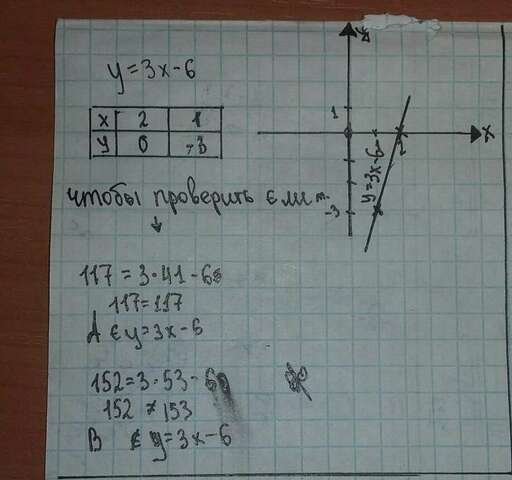 y=3x-6
x 2 1
y 0 -3
чтобы проверить ∈ ли т.
↓
117=3·41-6
117=117
A ∈ y=3x-6
152=3·53-6
152≠153
B ∉ y=3x-6
y
1
x
2
-3
y=3x-6